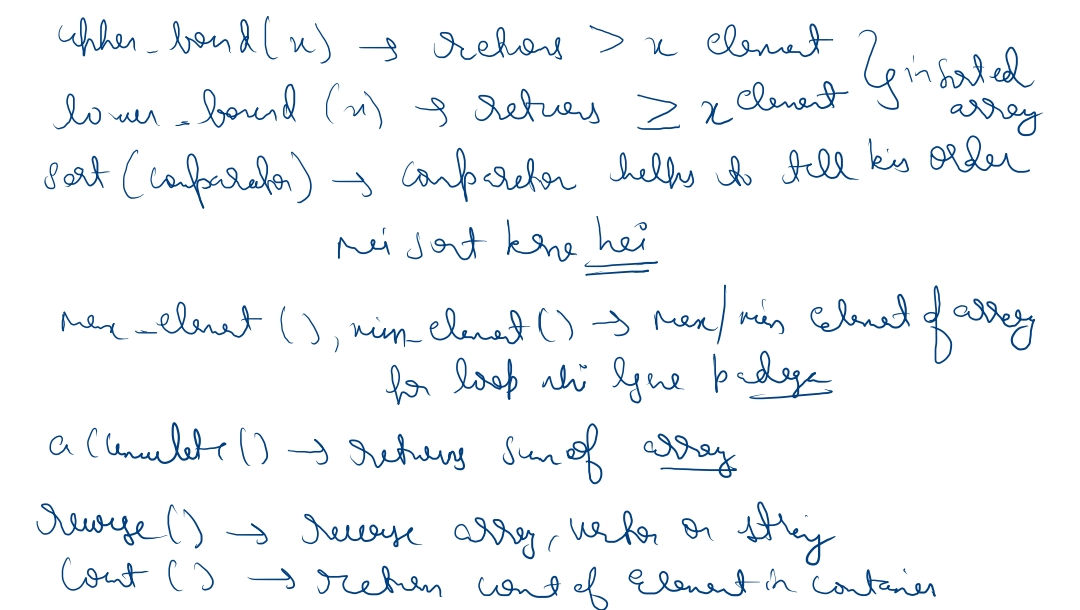 upper_bond(x) → returns > x element } in sorted array
lower_bound (x) → returns ≥ x element
sort (comparator) → comparator helps to tell kis order
mei sort krne hei
max_element (), min_element () → max/min element of array
for loop nhi lgne padega
accumulate () → returns sum of array
reverse () → reverse array, vector or string
count () → return count of element in container